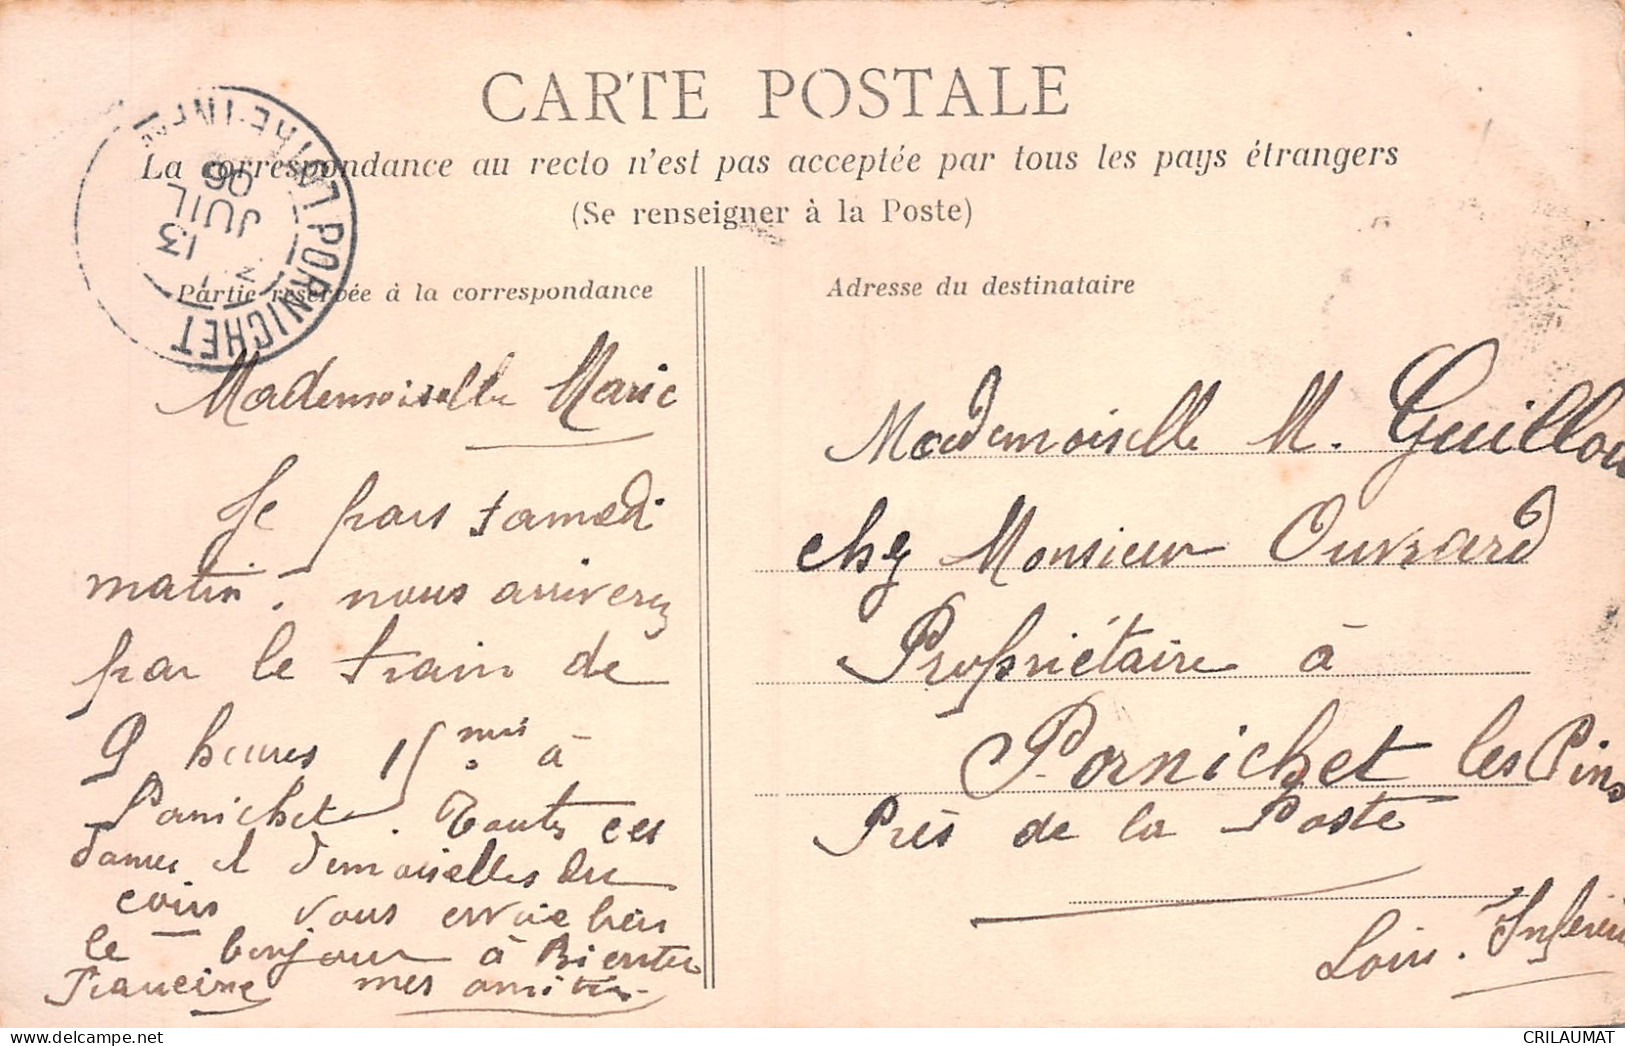 CARTE POSTALE
La correspondance au recto n'est pas acceptée par tous les pays étrangers
(Se renseigner à la Poste)
PORNICHET LOIRE-INFRE
13
JUIL
06
Partie réservée à la correspondance
Mademoiselle Marie
Je pars samedi
matin. nous arriverez
par le train de
9 heures 15 mis à
Panichet. Toutes ces
dames et demoiselles du
coins vous envoie bien
le bonjour à Bientu
Francine mes amitiés
Adresse du destinataire
Mademoiselle M. Guillou
chez Monsieur Ouvrard
Propriétaire à
Pornichet les Pins
Près de la Poste
Loire. Inférieu
CRILAUMAT